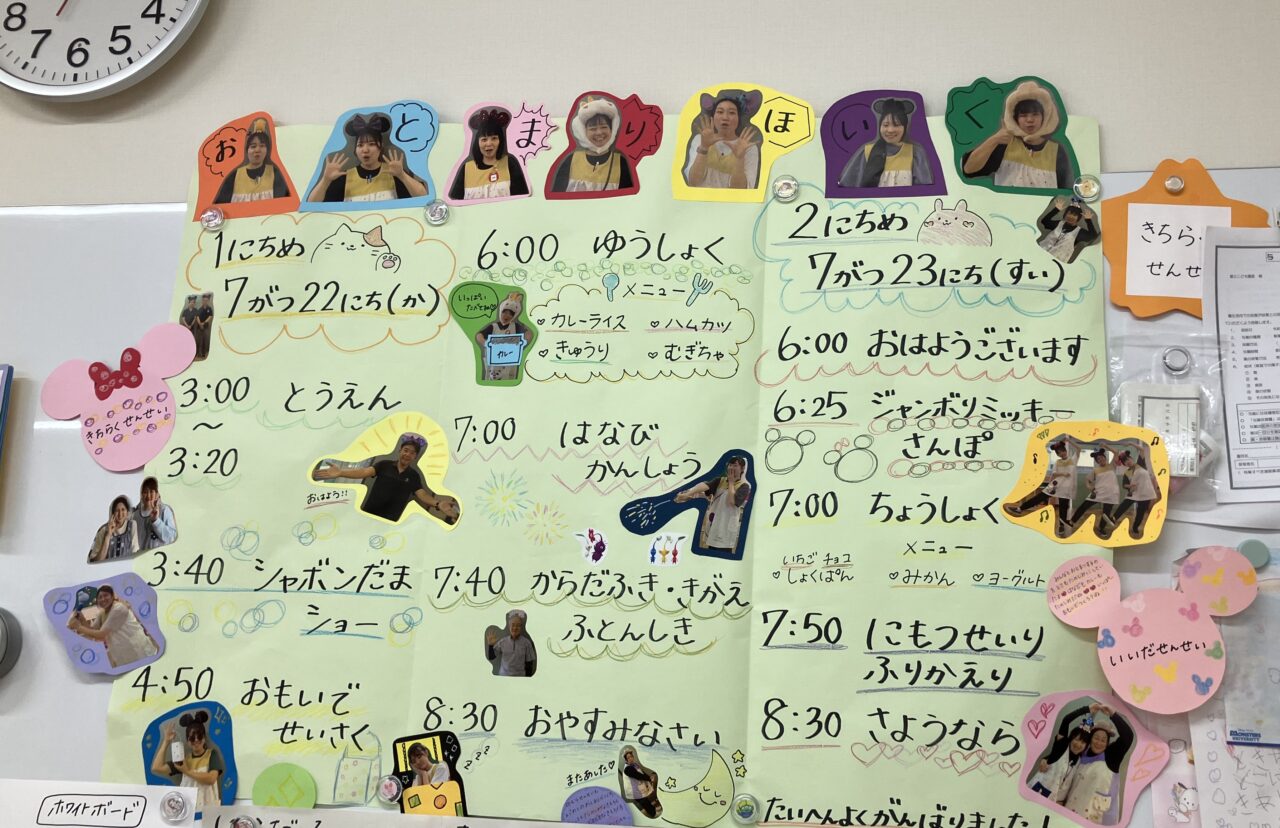 8
7
6
5
4
おとまりほいく
1にちめ
7がつ22にち(か)
3:00 とうえん
～
3:20
おはよう!!
3:40 シャボンだま
ショー
4:50 おもいで
せいさく
きちらくせんせい
6:00 ゆうしょく
メニュー
いっぱい
たべてね
カレー
♡カレーライス ♡ハムカツ
♡きゅうり ♡むぎちゃ
7:00 はなび
かんしょう
7:40 からだふき・きがえ
ふとんしき
8:30 おやすみなさい
zzz
またあした♡
2にちめ
7がつ23にち(すい)
6:00 おはようございます
6:25 ジャンボリミッキー
さんぽ
7:00 ちょうしょく
メニュー
♡いちごチョコ
しょくぱん
♡みかん ♡ヨーグルト
7:50 にもつせいり
ふりかえり
8:30 さようなら
たいへんよくがんばりました!
いいだせんせい
きちら
せんせ
ホワイトボード
MONSTERS
UNIVERSITY